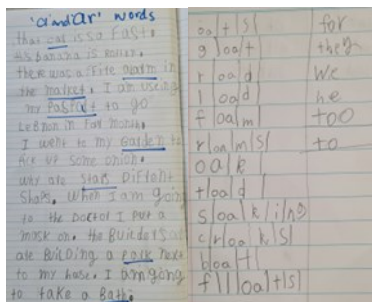 'a and ar' words
that cat is so fast.
this banana is rotten.
there was a fire alarm in
the market. I am using
my Passport to go
Lebnon in Fav month.
I went to my garden to
Pick uP some onion.
why are stars Difrent
ShaPs. When I am going
to the Doctor I Put a
mask on. the Builders
are Building a Park next
to my house. I am going
to take a Bath.
oa t s
g l oa t
r oa d
l oa d
f oa m
r oa m s
oa k
t oa d
s oa k i n g
c r oa k s
b oa t
f l oa t s
for
they
We
he
too
to